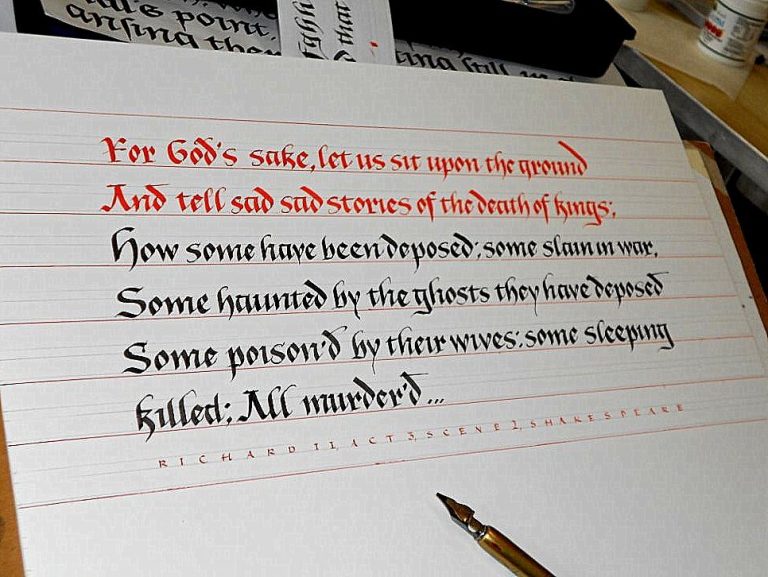 all's point.
For God's sake, let us sit upon the ground
And tell sad sad stories of the death of kings:
How some have been deposed; some slain in war,
Some haunted by the ghosts they have deposed
Some poison'd by their wives; some sleeping
killed; All murder'd...
RICHARD II, ACT 3, SCENE 2, SHAKESPEARE